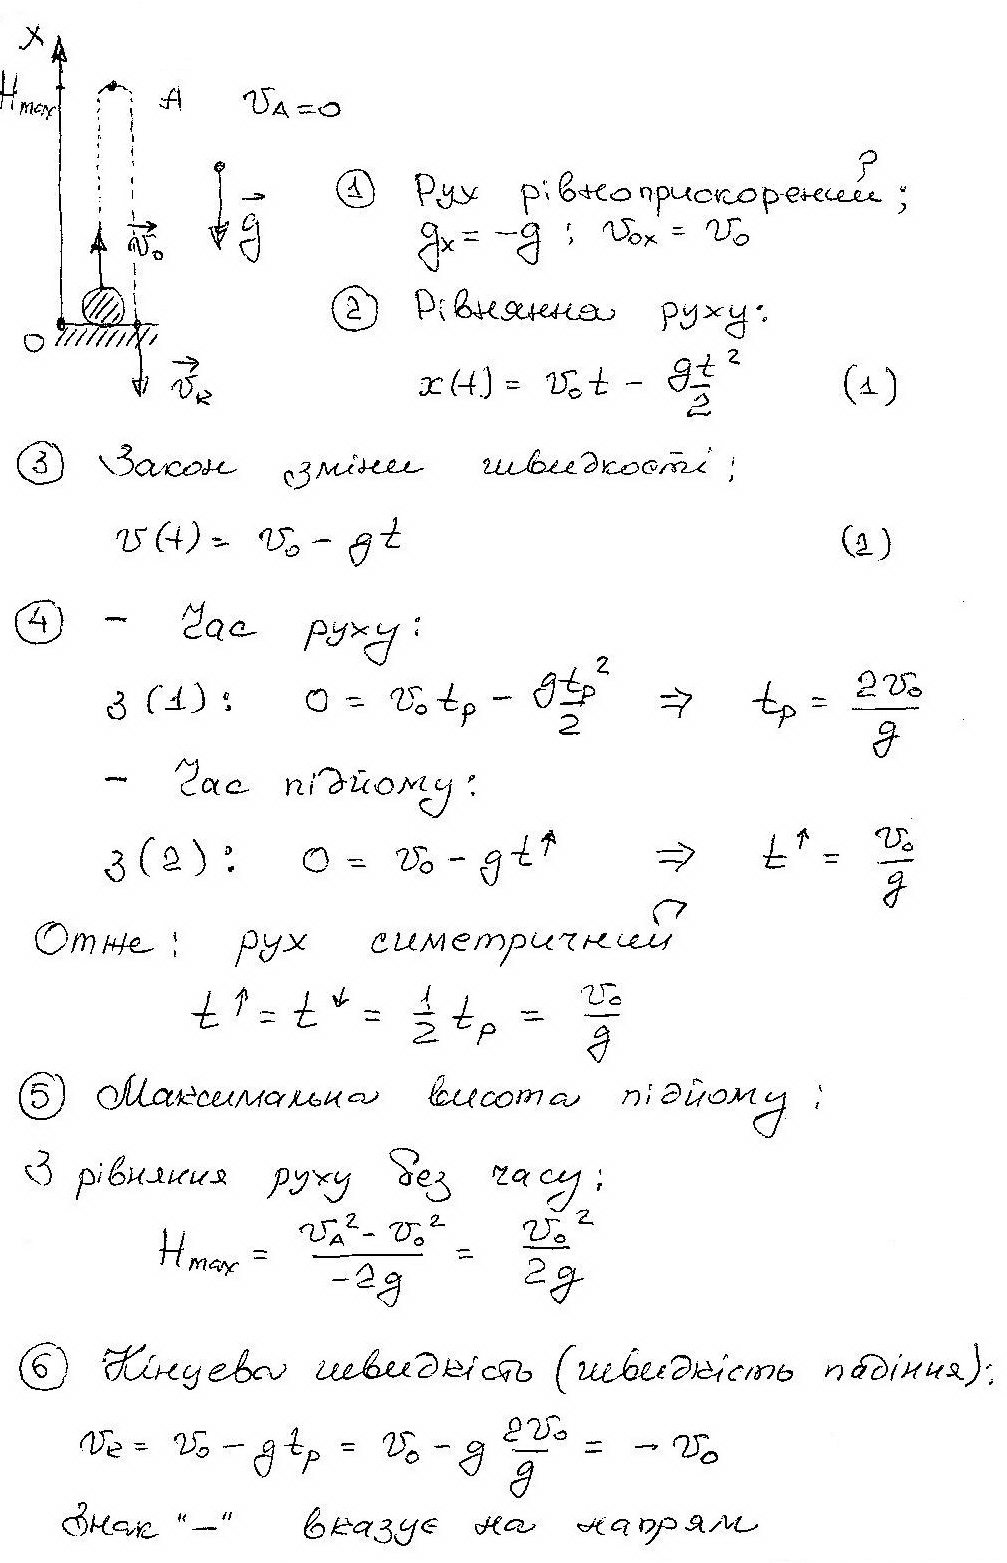 x
H_max
A
v_A = 0
v⃗_0
g⃗
O
v⃗_k
① Рух рівноприскорений;
g_x = -g ; v_0x = v_0
② Рівнянна руху:
x(t) = v_0 t - gt²/2 (1)
③ Закон зміни швидкості;
v(t) = v_0 - gt (2)
④ - Час руху:
З (1): 0 = v_0 t_p - gt_p²/2 ⇒ t_p = 2v_0/g
- Час підйому:
З (2): 0 = v_0 - gt↑ ⇒ t↑ = v_0/g
Отже: рух симетричний
t↑ = t↓ = 1/2 t_p = v_0/g
⑤ Максимальна висота підйому:
З рівняння руху без часу:
H_max = (v_A² - v_0²)/(-2g) = v_0²/2g
⑥ Кінцева швидкість (швидкість падіння):
v_k = v_0 - gt_p = v_0 - g 2v_0/g = - v_0
Знак "—" вказує на напрям